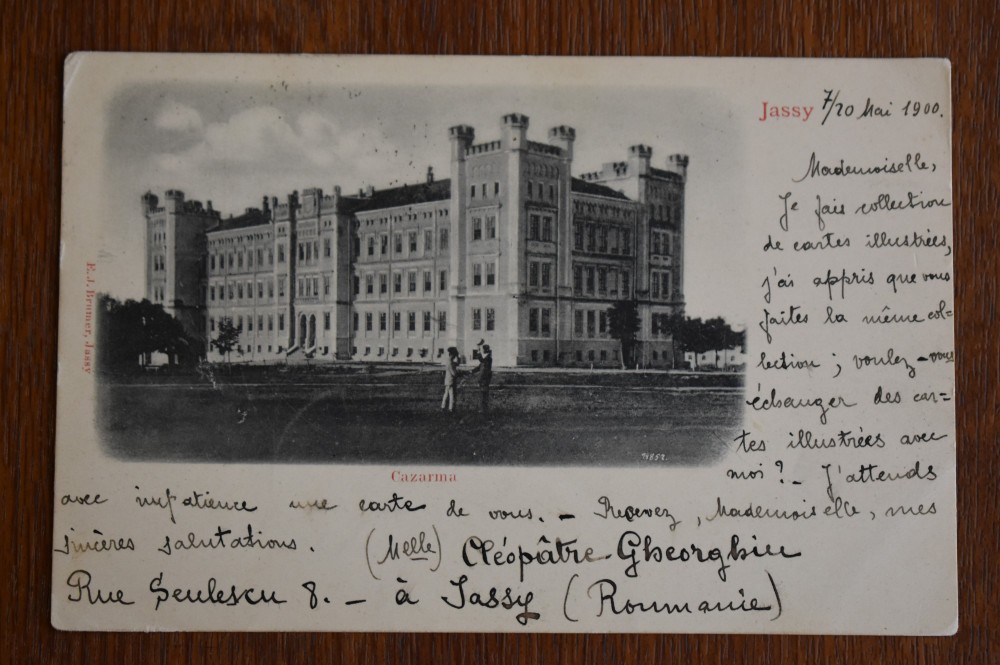 Jassy 7/20 Mai 1900.
Mademoiselle,
Je fais collection
de cartes illustrées,
j'ai appris que vous
faites la même col=
lection ; voulez-vous
échanger des car=
tes illustrées avec
moi ? _ J'attends
avec impatience une carte de vous. _ Recevez, Mademoiselle, mes
sincères salutations. (Melle) Cléopâtre Gheorghiu
Rue Şeulescu 8. _ à Jassy (Roumanie)
Cazarma
E. J. Brunner, Jassy